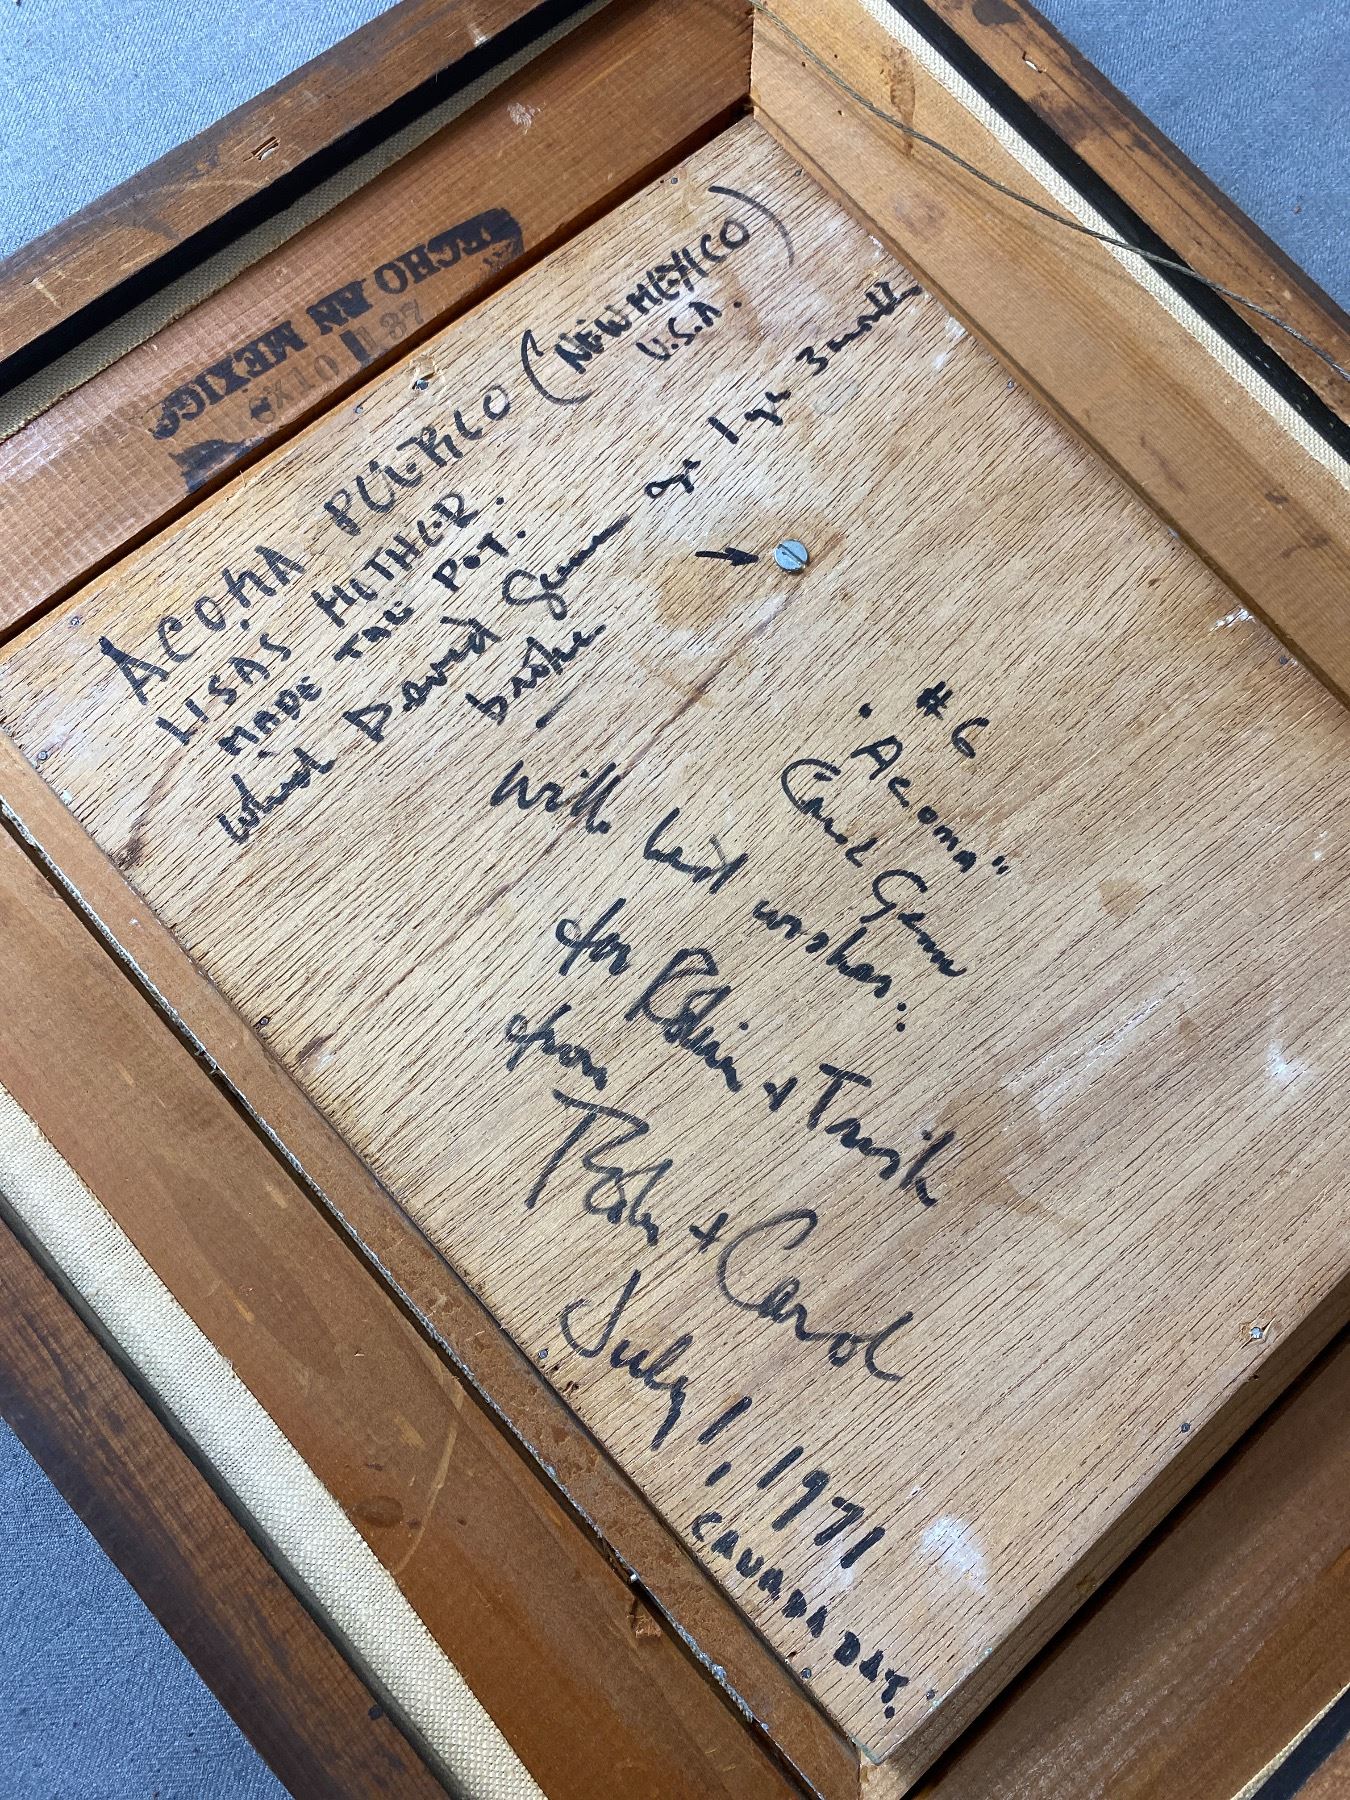 HECHO EN MEXICO
8X10 1 87
ACOMA PUEBLO (NEW MEXICO)
U.S.A.
LISA'S MOTHER.
MADE THE POT.
which David Gunn age 1 yr 3 months
broke.
#6
"Acoma"
Carol Gunn
With kind wishes:
for Robin + Trish
from
Bob + Carol
July 1, 1971
CANADA DAY.